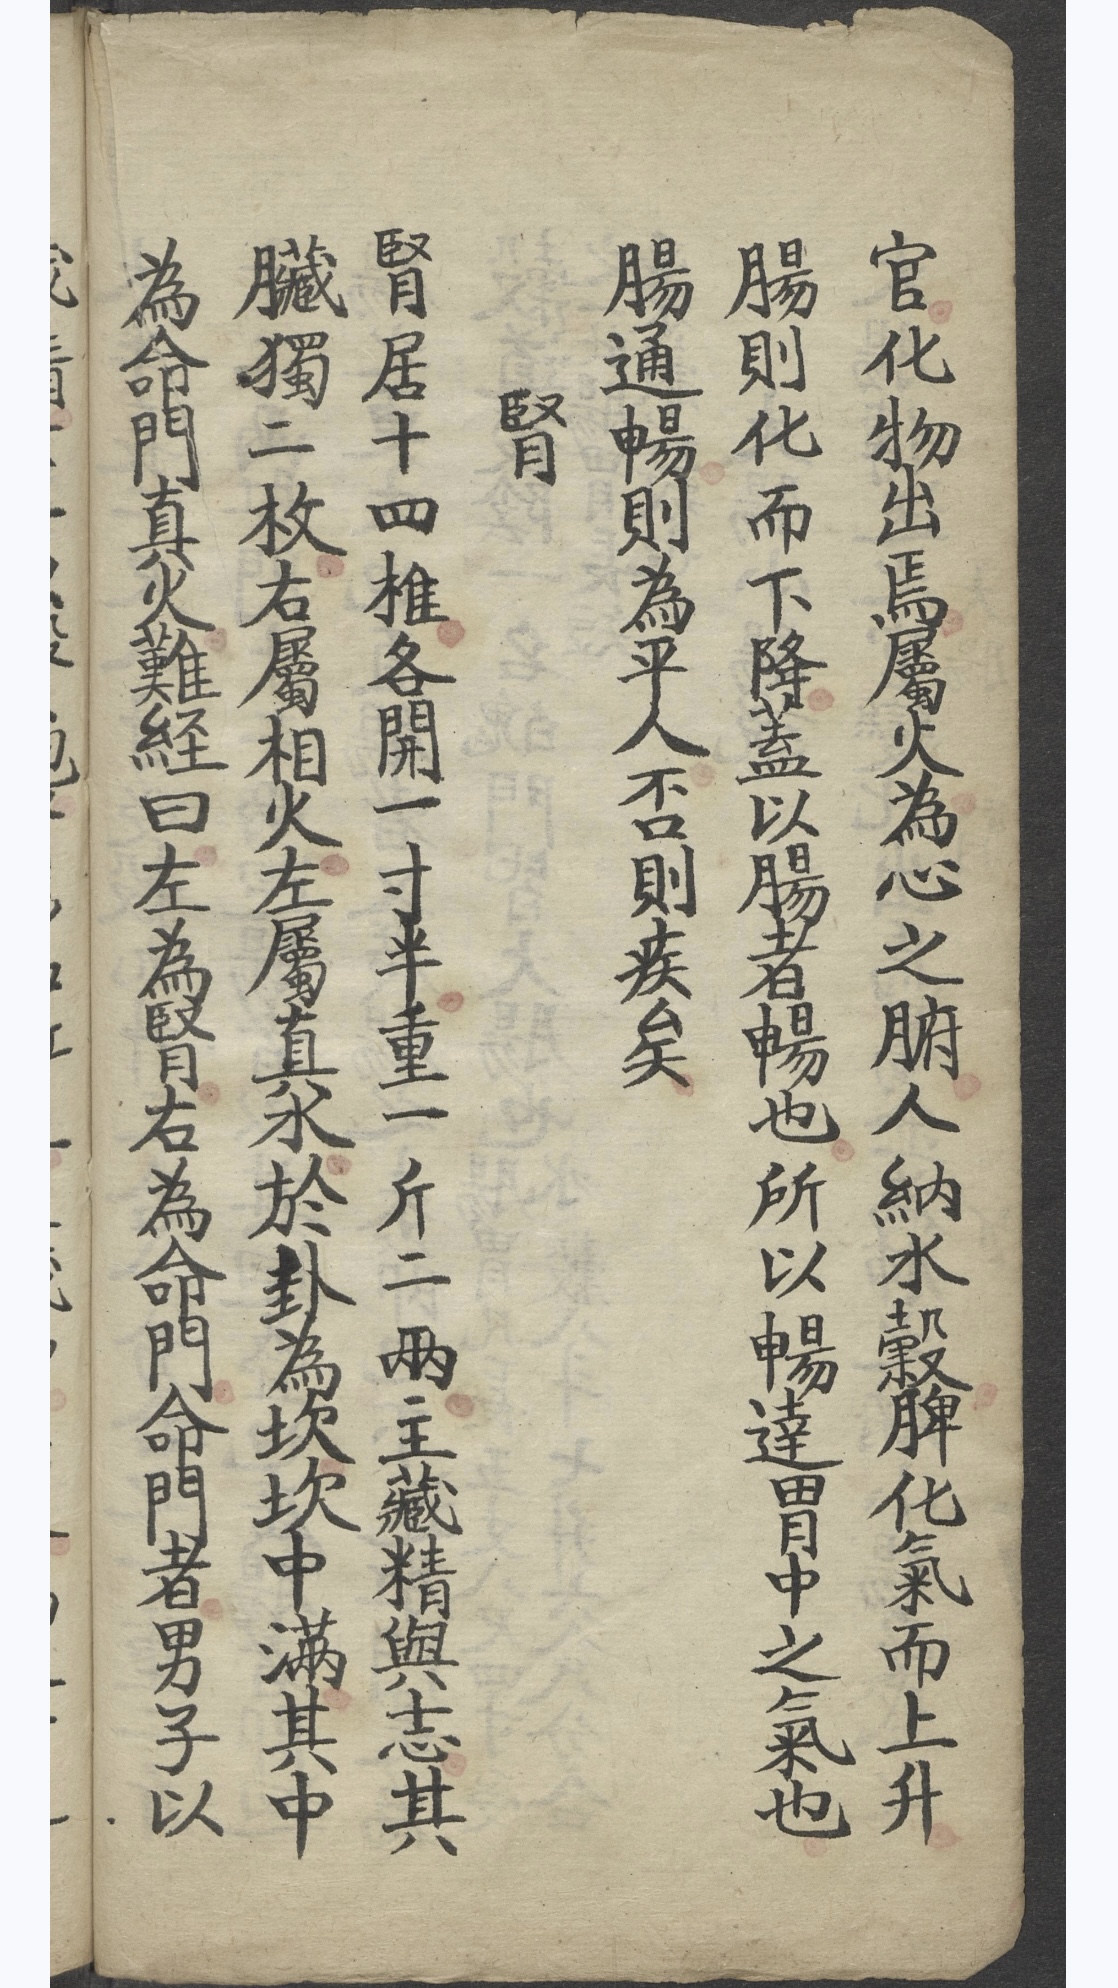 官化物出焉屬火為心之腑人納水穀脾化氣而上升
腸則化而下降蓋以腸者暢也所以暢達胃中之氣也
腸通暢則為平人否則疾矣
腎
腎居十四椎各開一寸半重一斤二兩主藏精與志其
臟獨二枚右屬相火左屬真水於卦為坎坎中滿其中
為命門真火難経曰左為腎右為命門命門者男子以